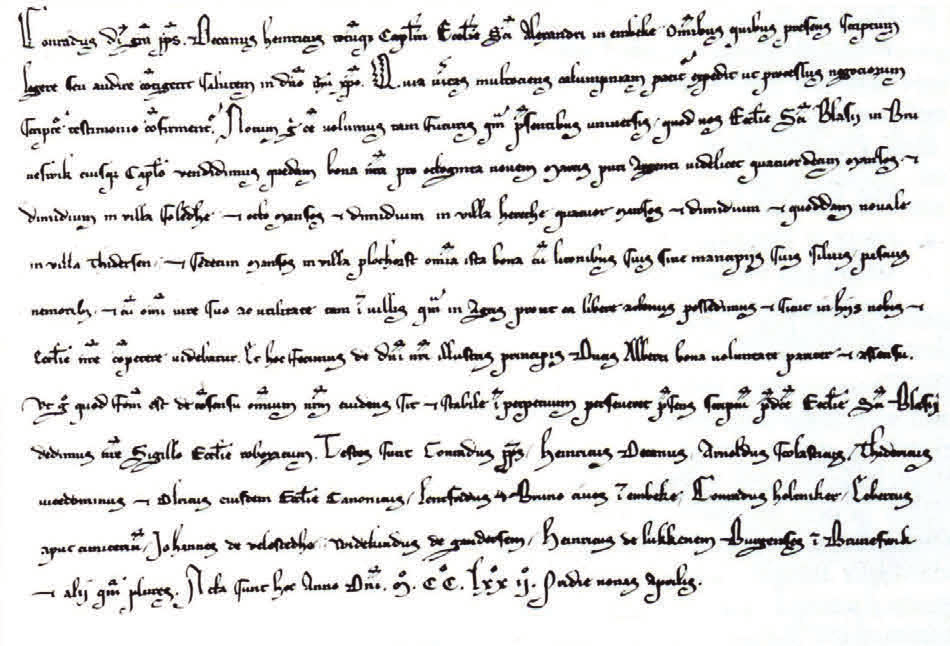 Conradus dei gra pps. Decanus heinricus totuqs Caplm Ecclie Sci Alexandri in embeke Omibus quibus presens scriptum
legere seu audire cotigerit salutem in dno ihu xpo. Quia multociens calumpniam expedit ut processus negociorum
scripto testimonio cofirment. Notum g ee volumus tam futuris qm psentibus universis quod nos Ecclie Sci Blasii in Bru
neswik eiusqs Caplo vendidimus quedam bona nra pro octoginta novem marcis puri Argenti videlicet quatuordecim mansos et
dimidium in villa Solědhe et octo mansos et dimidium in villa hereche quatuor mansos et dimidium et quoddam novale
in villa Thidersen et Sedecim mansos in villa plochorst omia ista bona cu litonibus suis sine mancipiis suis silvis pascuis
nemoribs et cu omi iure suo ac utilitate tam i villis qm in Agris prout ea libere possedimus et sicut in hiis nobis et
Ecclie nre copetere videbatur. Et hoc fecimus de dni nri illustris principis Ducis Alberti bona voluntate pariter et assensu.
Ut g quod fcm est de cosensu omium nrm evidens sit et stabile i perpetuum perseveret psens scriptu pdce Ecclie Sci Blasii
dedimus nre Sigillo Ecclie roboratum. Testes sunt Conradus pps, Heinricus Decanus, Arnoldus Scolasticus, Thidericus
vicedominus et Olricus eiusdem Ecclie Canonicus, et Bruno cives i embeke, Conradus holeniker, Ecbertus
aput cimiteriu, Johannes de velostedhe, widekindus de gandersem, Heinricus de lukkenem Burgenses i Bruneswik
et alii qm plures. Acta sunt hoc Anno Dni. M. CC. Lxx ii. Pridie nonas Aprilis.